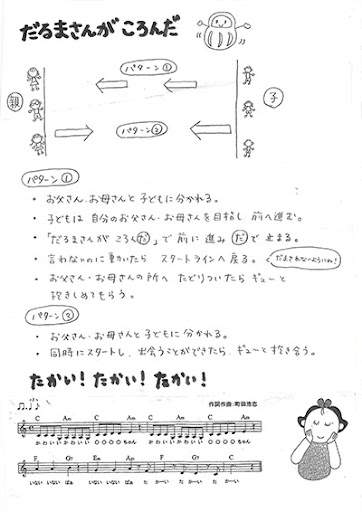 だるまさんが ころんだ
パターン①
親
子
パターン②
パターン①
・ お父さん、お母さんと 子どもに分かれる。
・ 子どもは 自分のお父さん・お母さんを目指し 前へ進む。
・ 「だるまさんが ころんだ」で 前に進み だで 止まる。
・ 言わないのに動いたら スタートラインへ戻る。
だまされないようにね!
・ お父さん・お母さんの所へ たどりついたら ギューと
抱きしめてもらう。
パターン②
・ お父さん・お母さんと子どもに分かれる。
・ 同時にスタートし、出会うことができたら、ギューと抱き合う。
たかい! たかい! たかい!
作詞作曲:町田浩志
C Am C Am C Am
かわいいかわいい〇〇〇〇ちゃん かわいいかわいい〇〇〇〇ちゃん
F G7 Em Am F G7 C
いない いない ばぁ いない いない ばぁ た かーい た かーい